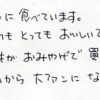 に食べています。
もとってもおいしいで
がおみやげで買
から大ファンにな